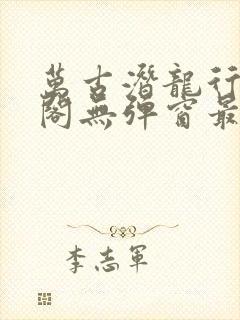 萬古潛龍行
閣無彈窗最
李志軍